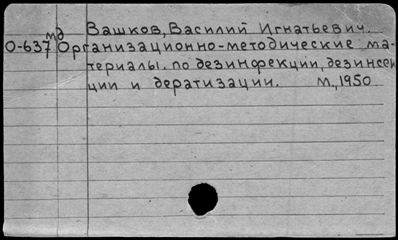 Вашков, Василий Игнатьевич.
мд
О-637 Организационно-методические ма-
териалы по дезинфекции, дезинсек
ции и дератизации. М., 1950